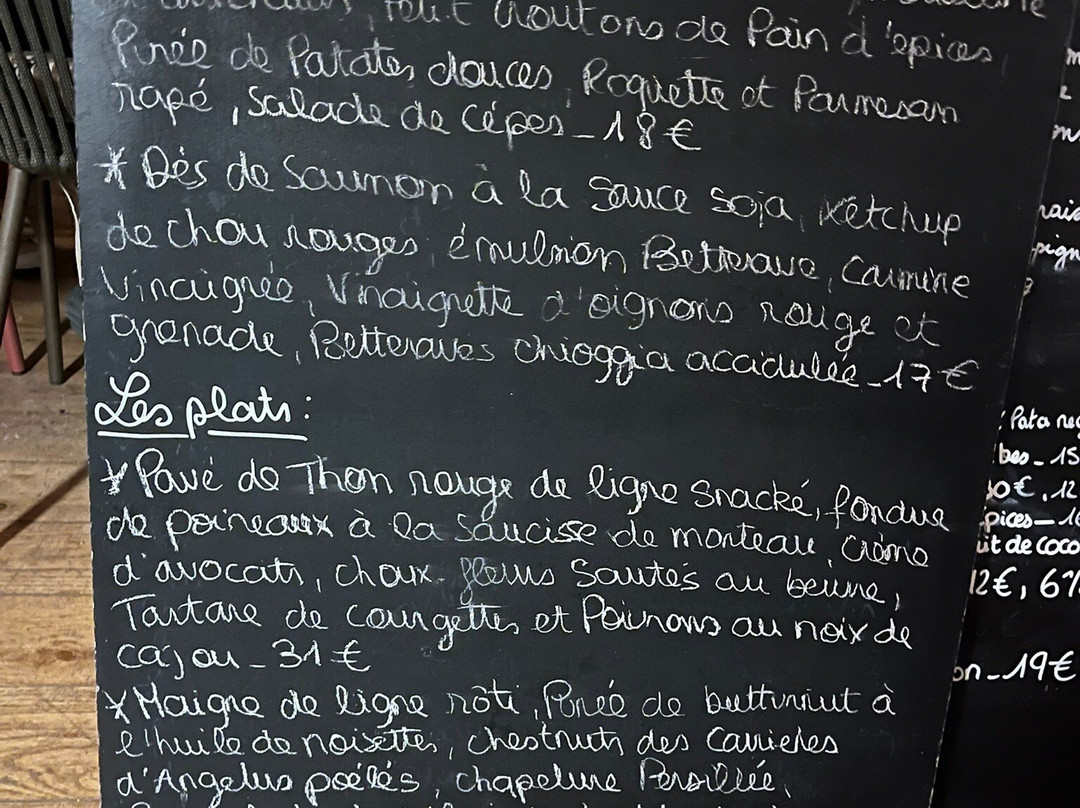 Petit Croutons de Pain d'épices,
Purée de Patates douces, Roquette et Parmesan
rapé, Salade de Cépes_18€
* Dés de Saumon à la Sauce Soja, Ketchup
de chou rouges, émulsion Betterave, Carmine
Vinaigrée, Vinaigrette d'oignons rouge et
grenade, Betteraves chioggia accidulée_17€
Les plats:
* Pavé de Thon rouge de ligne Snacké, fondue
de poireaux à la saucisse de morteau, Crème
d'avocats, choux-fleurs Sautés au beurre,
Tartare de courgettes et Poivrons au noix de
cajou_31€
* Maigre de ligne rôti, Purée de butternut à
l'huile de noisettes, chestnuts des Carrieres
d'Angelus poélés, chapelure Persillée,
Pata
15
0€, 12
pices_
it de coco
12€, 6
on_19€